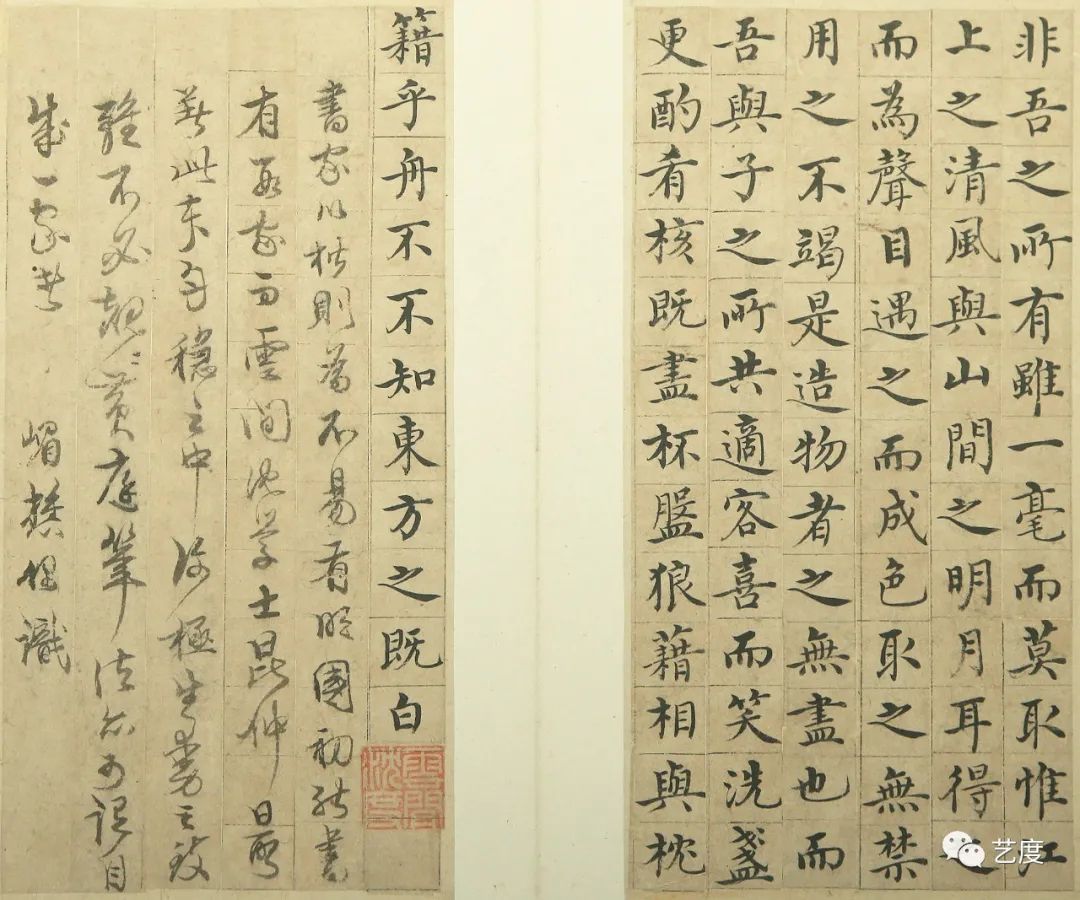 非吾之所有雖一毫而莫取惟江
上之清風與山間之明月耳得之
而為聲目遇之而成色取之無禁
用之不竭是造物者之無盡也而
吾與子之所共適客喜而笑洗盞
更酌肴核既盡杯盤狼藉相與枕
籍乎舟不不知東方之既白
雲間沈度
書家以楷則為不易有明國初能書
有數家而雲間沈學士昆仲最
著此本穩之中極生秀之致
雖不必規規黃庭筆法亦可謂自
成一家
識
艺度